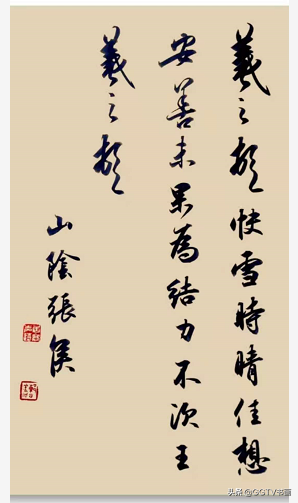 羲之頓首快雪時晴佳想
安善未果為結力不次王
羲之頓首
山陰張侯
头条 @GGTV书画